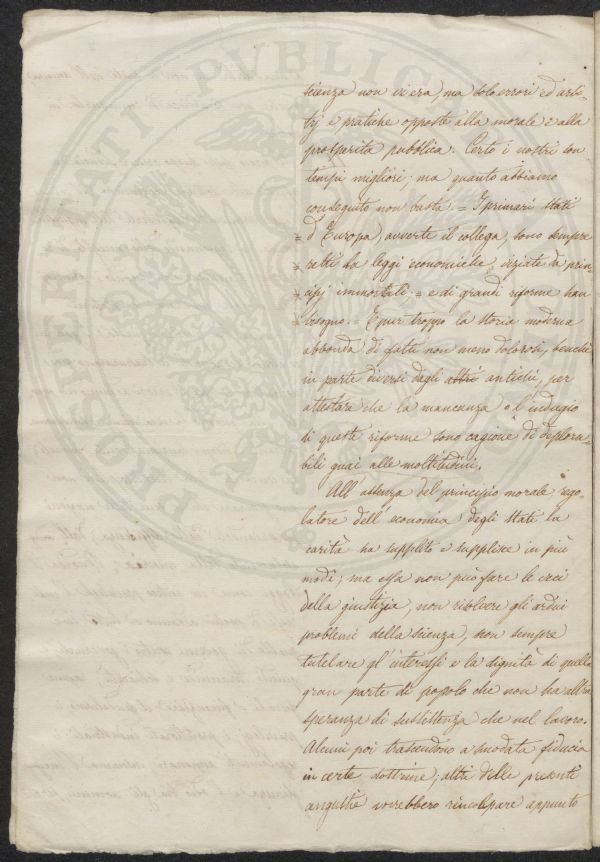 scienza non vi era, ma solo errori ed arbi-
trj e pratiche opposte alla morale e alla
prosperità pubblica. Certo i nostri son
tempi migliori; ma quanto abbiamo
conseguito non basta. = I primari stati
= d'Europa, avverte il collega, sono sempre
= retti da leggi economiche, viziate da prin-
= cipj immortali; = e di grandi riforme han
= bisogno. = E pur troppo la storia moderna
abbonda di fatti non meno dolorosi, benchè
in parte diversi dagli altri antichi, per
attestare che la mancanza o l'indugio
di queste riforme sono cagione di deplora-
bili guai alle moltitudini.
All'assenza del principio morale rego-
latore dell'economia degli stati la
carità ha supplito e supplisce in più
modi; ma essa non può fare le veci
della giustizia, non risolvere gli ardui
problemi della scienza, non sempre
tutelare gl'interessi e la dignità di quella
gran parte di popolo che non ha altra
speranza di sussistenza che nel lavoro.
Alcuni poi trascendono a snodata fiducia
in certe dottrine; altri delle presenti
angustie vorrebbero rincolpare appunto
PROSPERITATI PVBLICAE